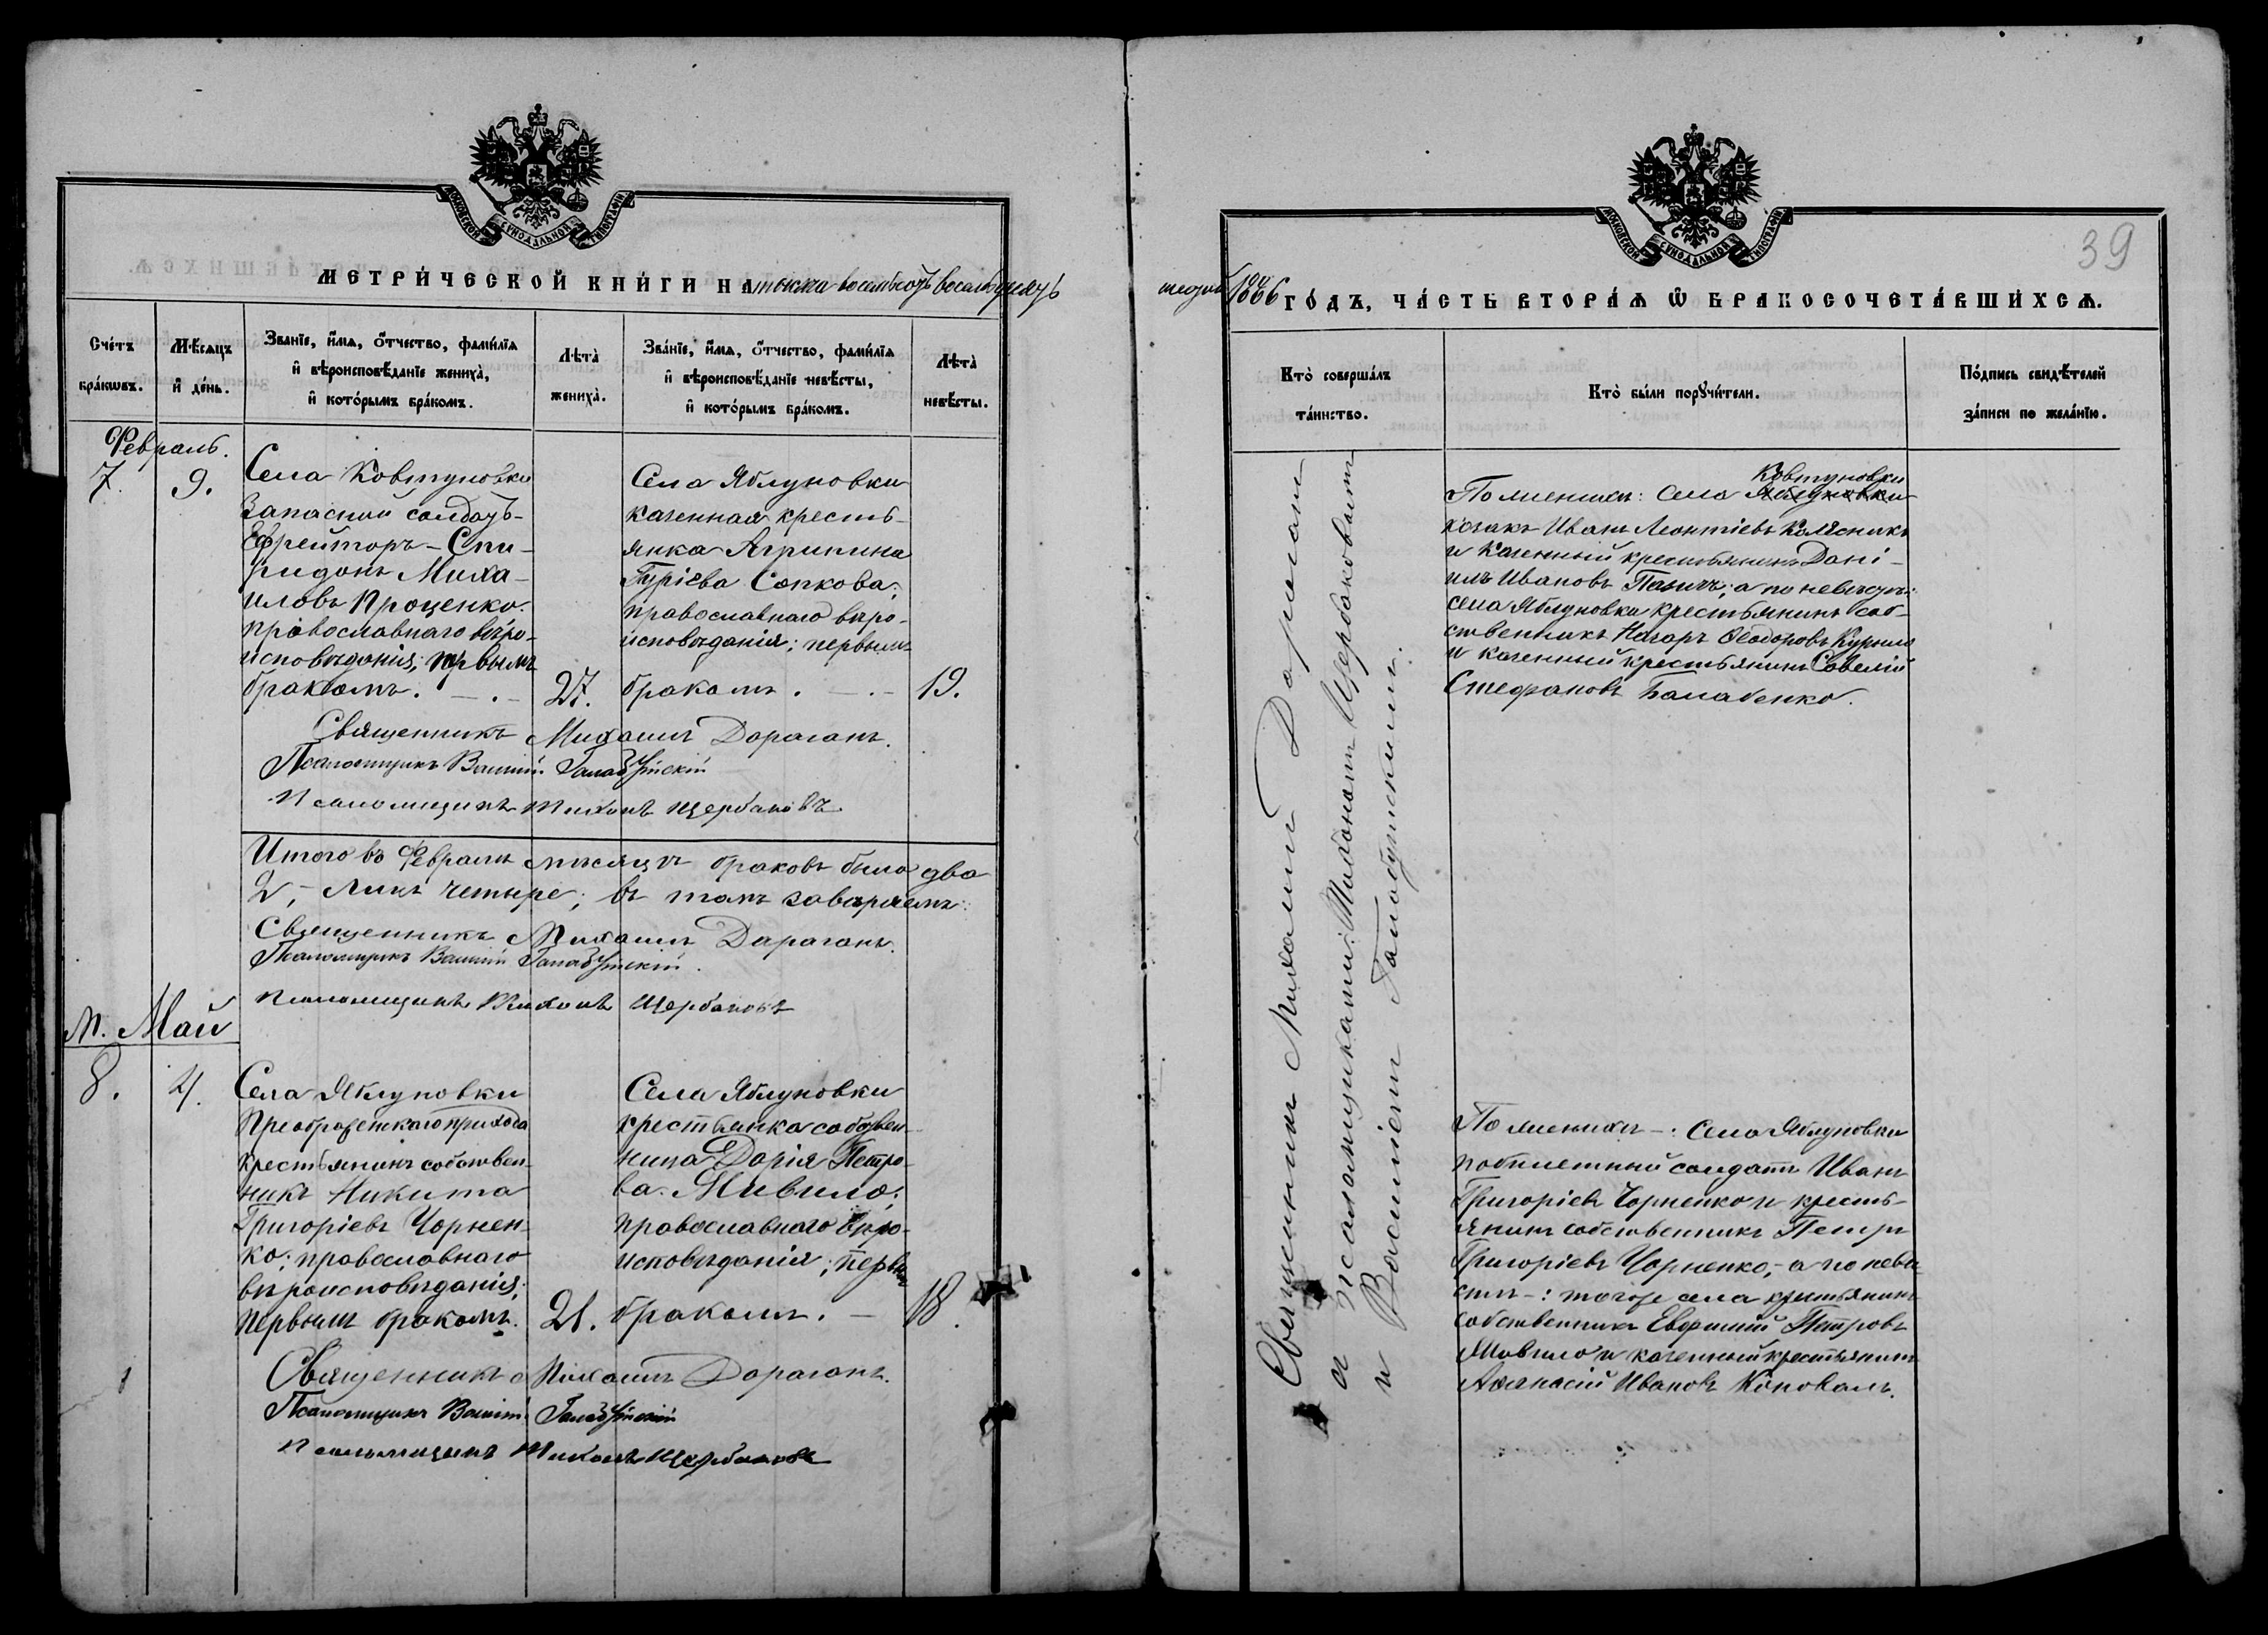 МОСКОВСКОЙ СѴНОДАЛЬНОЙ ТИПОГРАФІИ
МЕТРИ́ЧЕСКОЙ КНИ́ГИ НА тысяча восемьсотъ восемьдесятъ
Сче́тъ бра́кωвъ.
Мѣ́сяцъ и҆ де́нь.
Зва́нїе, и҆́мѧ, ѻ҆́тчество, фами́лїѧ
и҆ вѣроисповѣ́данїе жениха̀,
и҆ кото́рымъ бра́комъ.
Лѣта̀ жениха̀.
Зва́нїе, и҆́мѧ, ѻ҆́тчество, фами́лїѧ
и҆ вѣроисповѣ́данїе невѣ́сты,
и҆ кото́рымъ бра́комъ.
Лѣта̀ невѣ́сты.
Февраль.
7.
9.
Села Ковтуновки
запасной солдатъ-
Ефрейторъ - Спи-
ридонъ Миха-
иловъ Проценко.
православнаго вѣро-
исповѣданія; первымъ
бракомъ. — . —
27.
Села Яблуновки
казенная кресть-
янка Агрипина
Гуріева Сопкова;
православнаго вѣро-
исповѣданія; первымъ
бракомъ. — . —
19.
Священникъ Михаилъ Дараганъ.
Псаломщикъ Василій
Псаломщикъ Тихонъ Щербаковъ
Итого въ Февралѣ мѣсяцѣ браковъ было два
2, - лицъ четыре; въ томъ завѣряемъ:
Священникъ Михаилъ Дараганъ.
Псаломщикъ Василій
Псаломщикъ Тихонъ Щербаковъ
М. Май
8.
4.
Села Яблуновки
Преображенскаго прихода
крестьянинъ собствен-
никъ Никита
Григоріевъ Чорнен-
ко; православнаго
вѣроисповѣданія;
первымъ бракомъ.
21.
Села Яблуновки
крестьянка собствен-
ница Дарія Петро-
ва Мивило;
православнаго вѣро-
исповѣданія; первымъ
бракомъ. —
18.
Священникъ Михаилъ Дараганъ.
Псаломщикъ Василій
Псаломщикъ Тихонъ Щербаковъ
39
МОСКОВСКОЙ СѴНОДАЛЬНОЙ ТИПОГРАФІИ
шестой 1886 ГО́ДЪ, ЧА́СТЬ ВТОРА́Ѧ Ѡ҆ БРАКОСОЧЕТА́ВШИХСѦ.
Кто̀ соверша́лъ та́инство.
Кто̀ бы́ли порꙋчи́тели.
По́дпись свидѣ́телей за́писи по жела́нїю.
Священникъ Михаилъ Дараганъ
съ псаломщиками: Тихономъ Щербаковымъ
и Василіемъ
Ковтуновки
По женихѣ: села Яблуновки
козакъ Иванъ Леонтіевъ Колѣсникъ
и казенный крестьянинъ Дані-
илъ Ивановъ; а по невѣстѣ:
села Яблуновки крестьянинъ соб-
ственникъ Назаръ Ѳеодоровъ
и казенный крестьянинъ Савелій
Стефановъ Балабенко.
По женихѣ —: села Яблуновки
солдатъ Иванъ
Григоріевъ Чорненко и кресть-
янинъ собственникъ Петръ
Григоріевъ Чорненко, - а по невѣ-
стѣ -: тогоже села крестьянинъ
собственникъ Евфимій Петровъ
Мивило и казенный крестьянинъ
Аѳанасій Ивановъ Коновалъ.